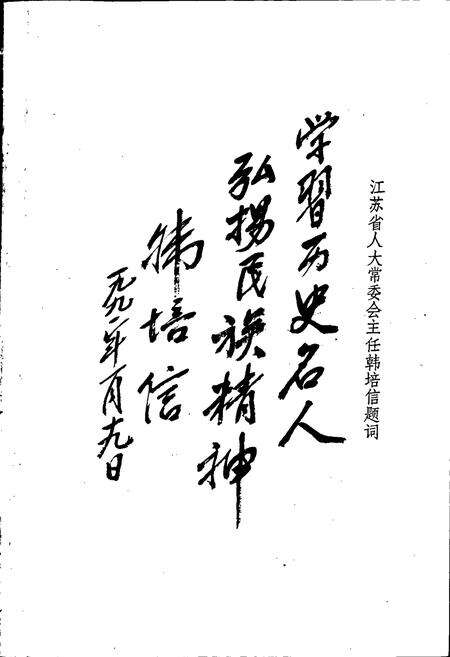 江苏省人大常委会主任韩培信题词
学習历史名人
弘揚民族精神
韩培信
一九九一年一月十九日